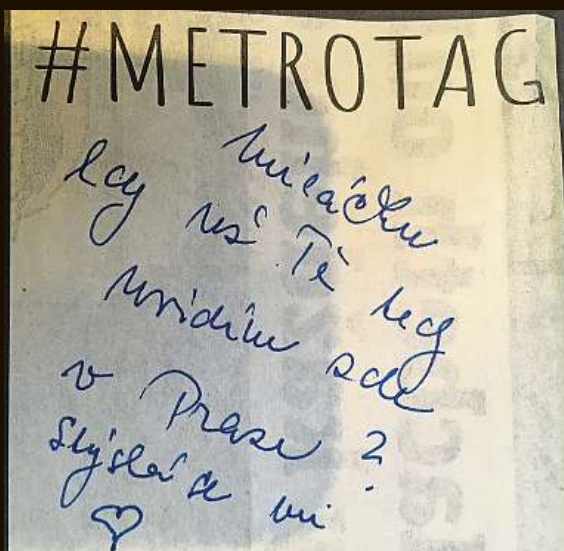 #METROTAG
Miláčku
kdy už Tě tedy
uvidím zde
v Praze ?
Stýská se mi
♡